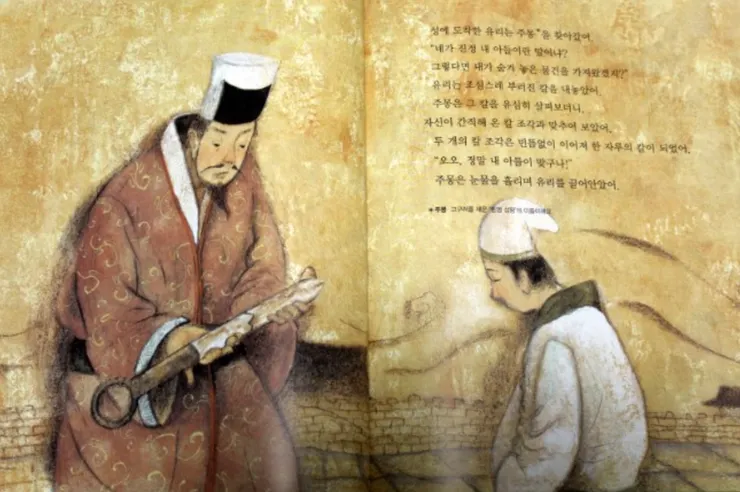 성에 도착한 유리는 주몽*을 찾아갔어.
"네가 진정 내 아들이란 말이냐?
그렇다면 내가 숨겨 놓은 물건을 가져왔겠지?"
유리는 조심스레 부러진 칼을 내놓았어.
주몽은 그 칼을 유심히 살펴보더니,
자신이 간직해 온 칼 조각과 맞추어 보았어.
두 개의 칼 조각은 빈틈없이 이어져 한 자루의 칼이 되었어.
"오오, 정말 내 아들이 맞구나!"
주몽은 눈물을 흘리며 유리를 끌어안았어.
*주몽 고구려를 세운